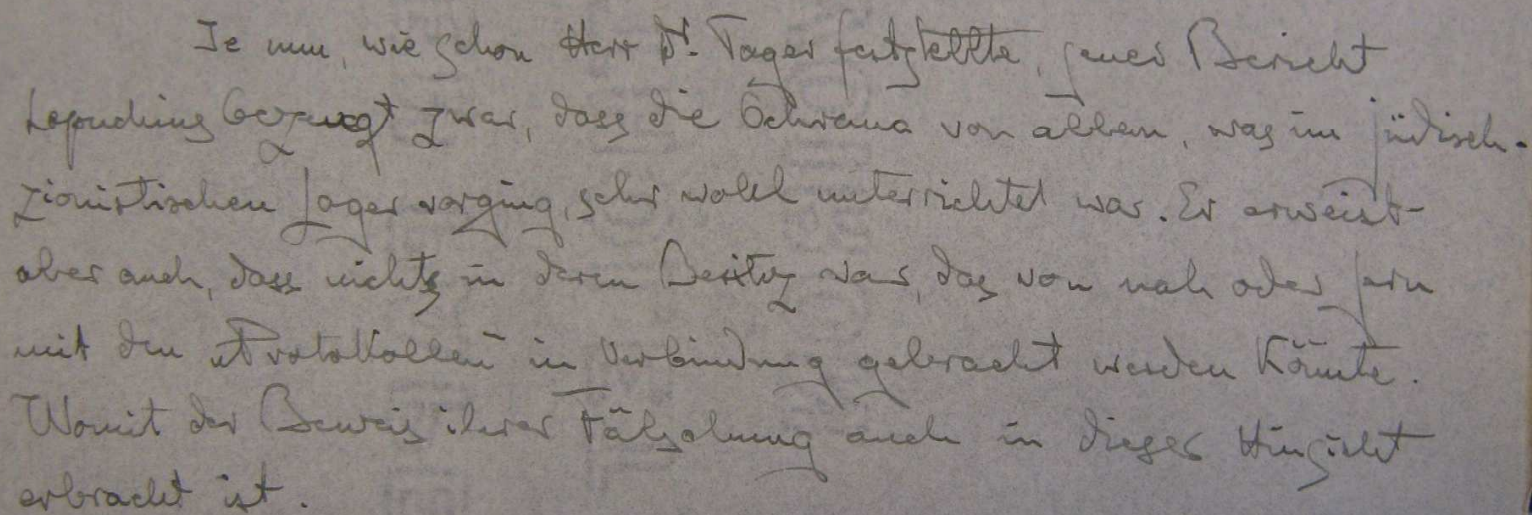 Je nun, wie schon Herr Dr. Tager feststellte, jener Bericht
Lopuchins bezeugt zwar, dass die Ochrana von allem, was im jüdisch-
zionistischen Lager vorging, sehr wohl unterrichtet war. Er erweist
aber auch, dass nichts in deren Besitz war, das von nah oder fern
mit den „Protokollen" in Verbindung gebracht werden könnte.
Womit der Beweis ihrer Fälschung auch in dieser Hinsicht
erbracht ist.